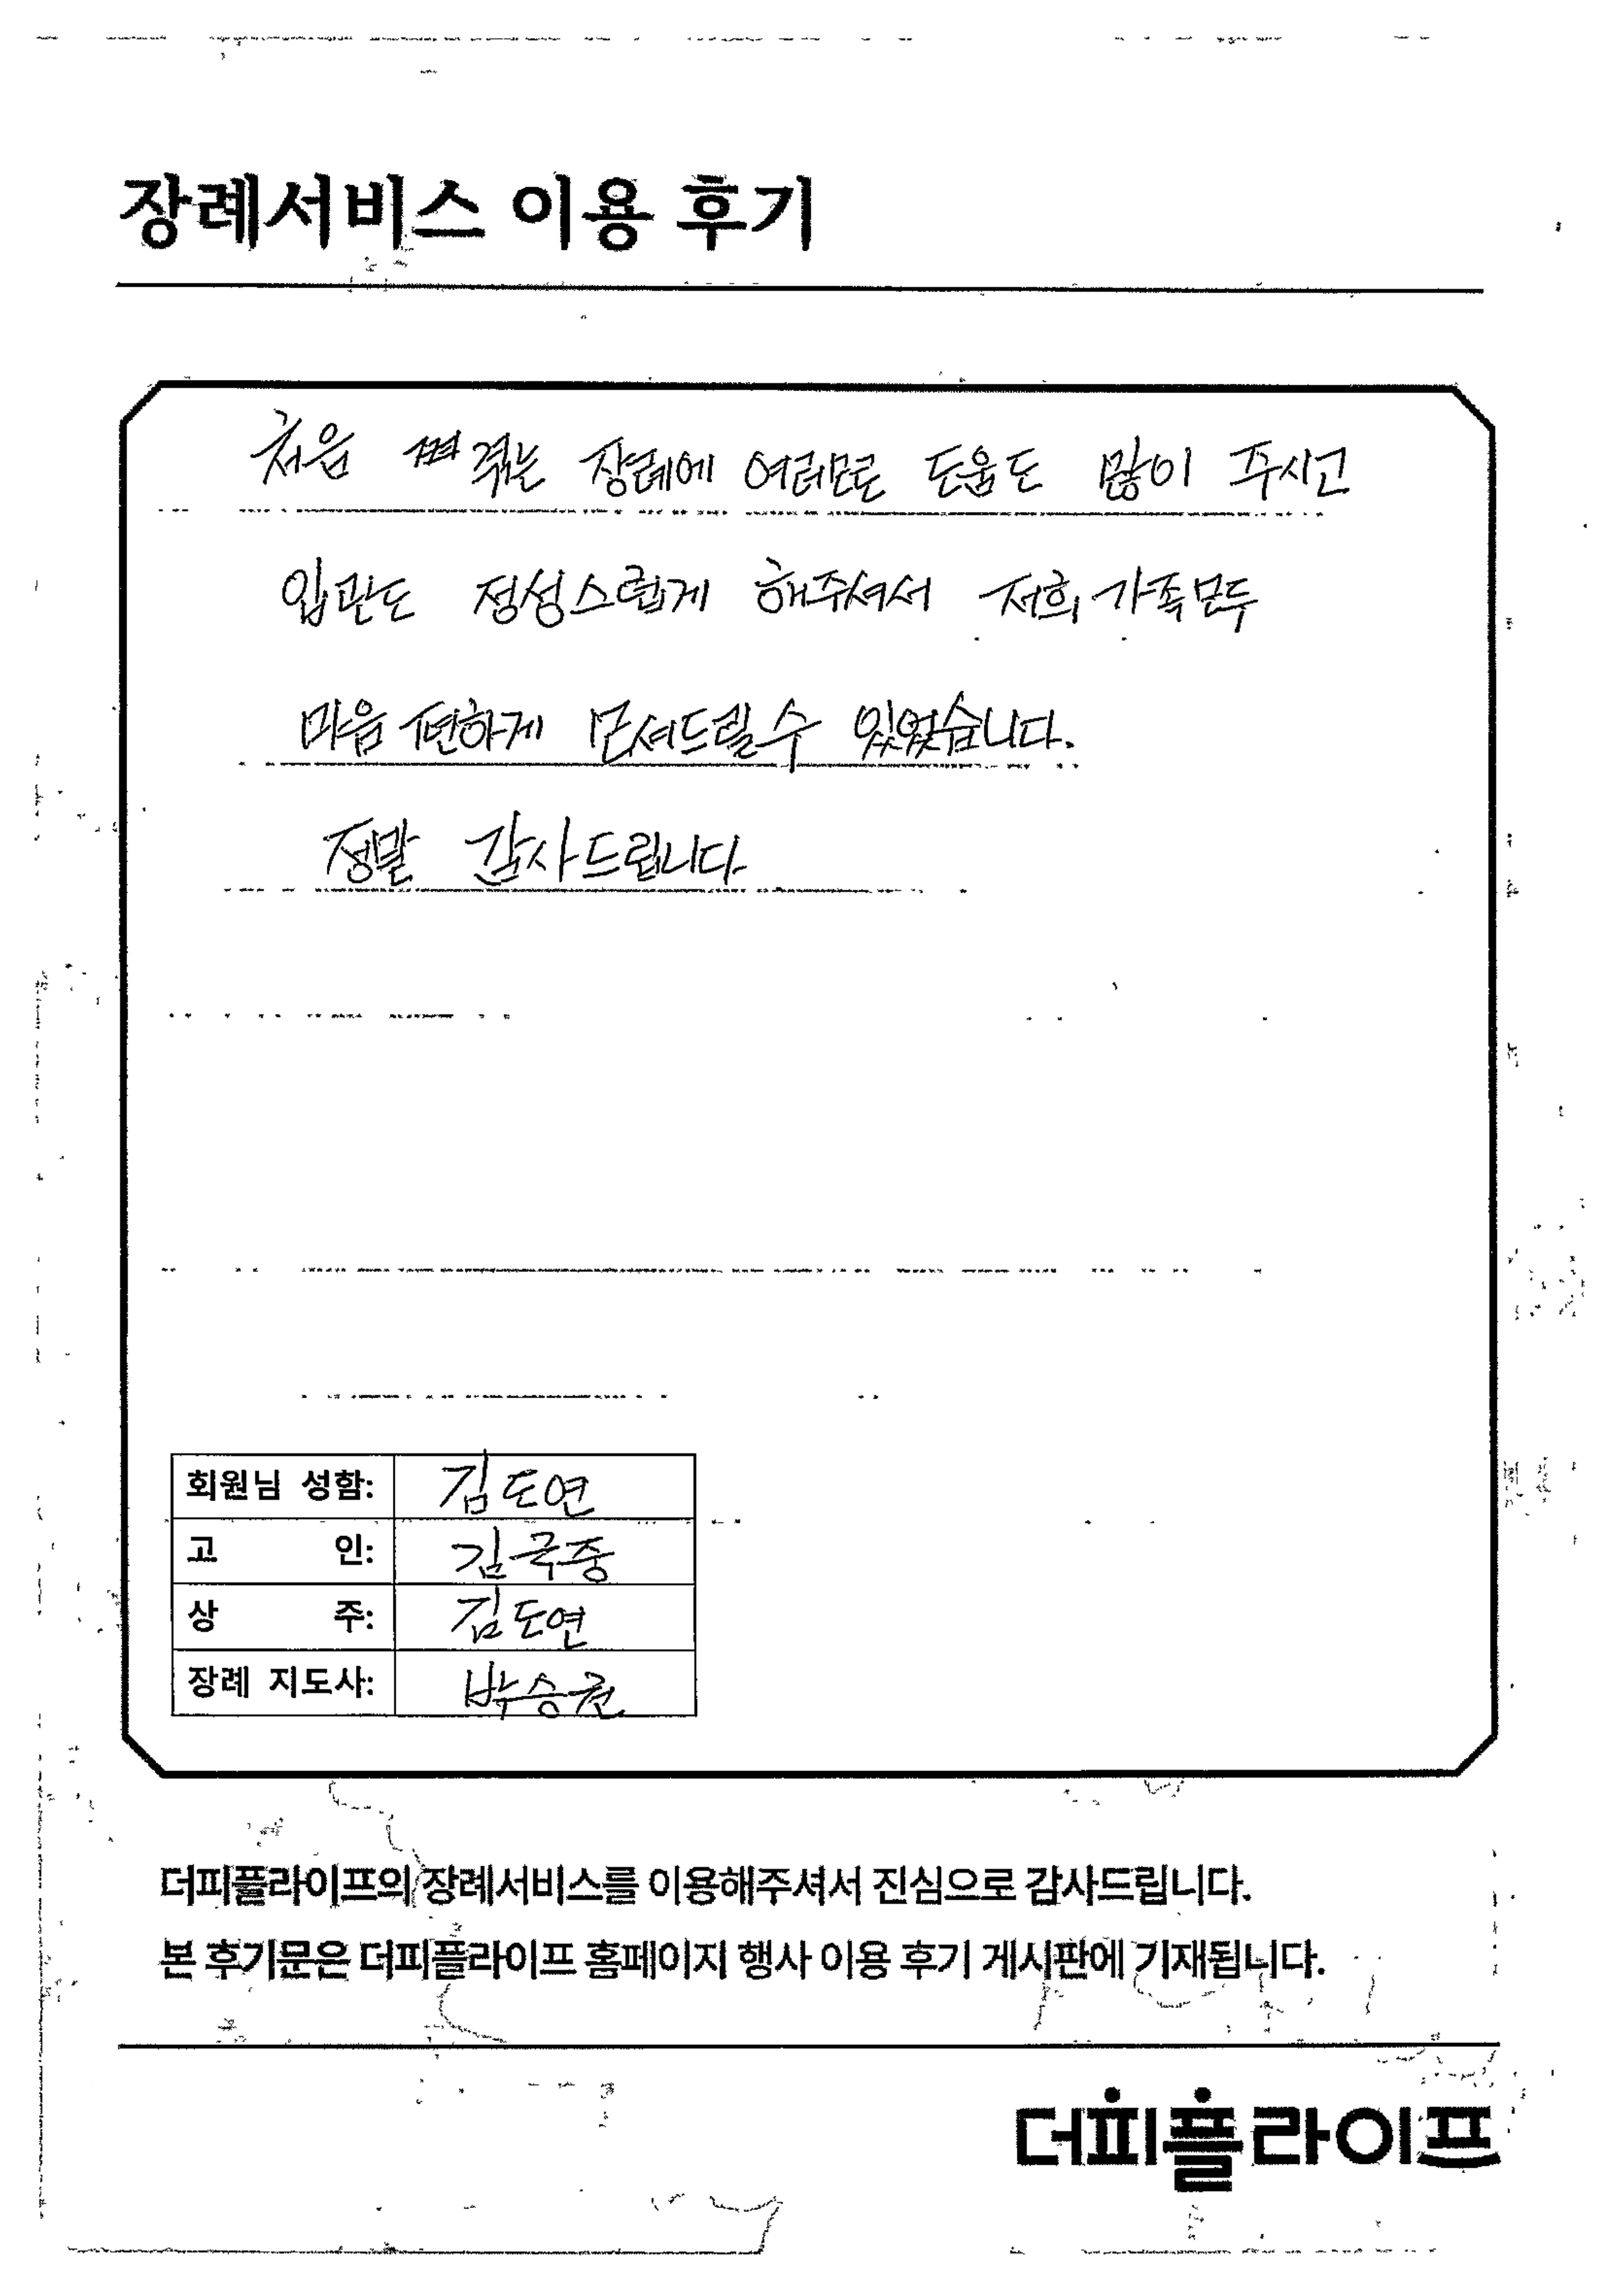 장례서비스 이용 후기
처음 겪는 장례에 여러모로 도움도 많이 주시고
입관도 정성스럽게 해주셔서 저희 가족모두
마음 편하게 모셔드릴수 있었습니다.
정말 감사드립니다
회원님 성함: 김도연
고 인: 김국중
상 주: 김도연
장례 지도사: 박승권
더피플라이프의 장례서비스를 이용해주셔서 진심으로 감사드립니다.
본 후기문은 더피플라이프 홈페이지 행사 이용 후기 게시판에 기재됩니다.
더피플라이프